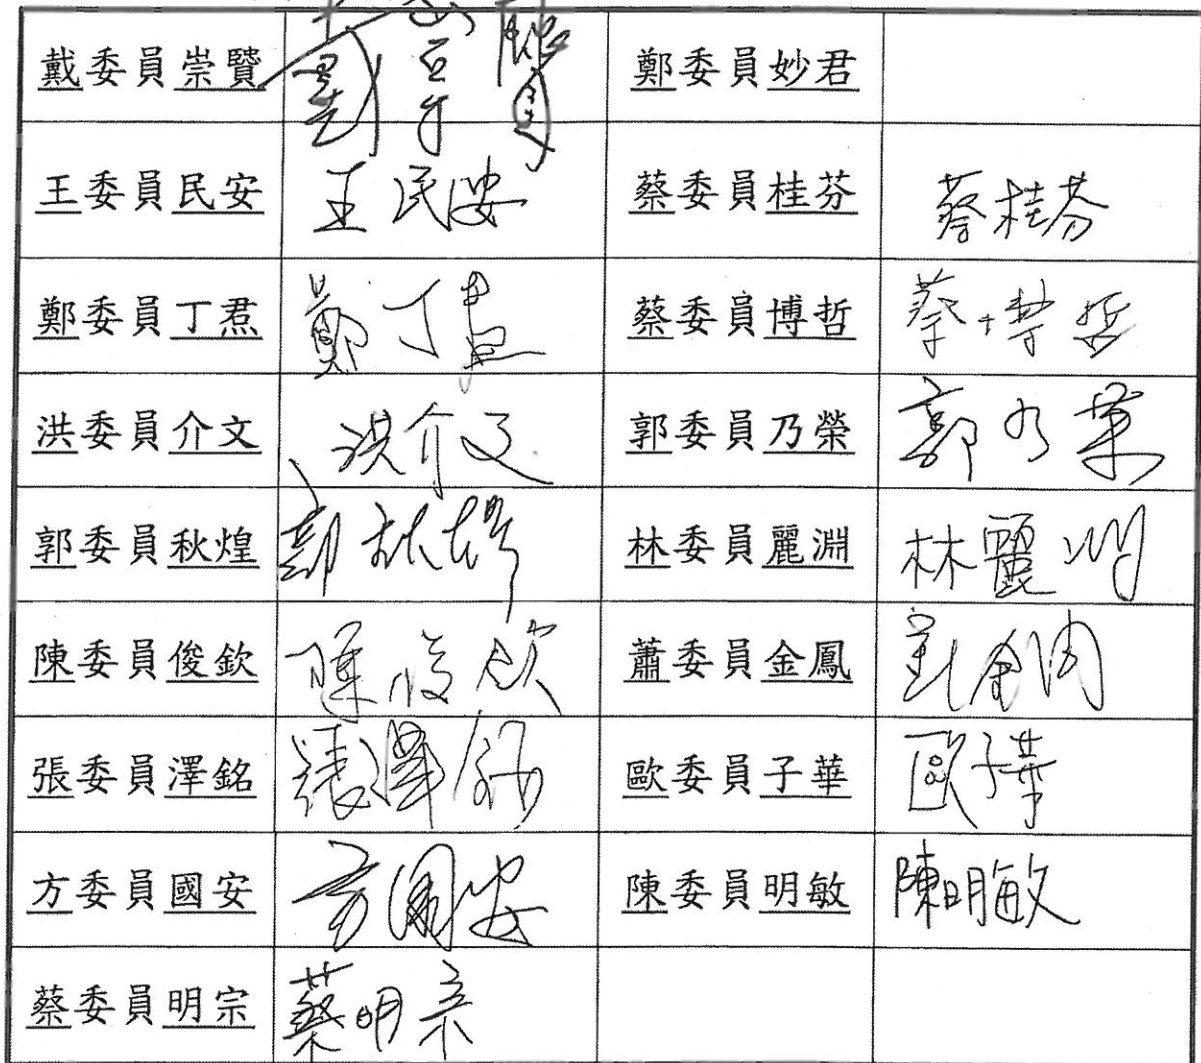 戴委員崇贒 戴崇賢 鄭委員妙君
王委員民安 王民安 蔡委員桂芬 蔡桂芬
鄭委員丁焄 鄭丁焄 蔡委員博哲 蔡博哲
洪委員介文 洪介文 郭委員乃榮 郭乃榮
郭委員秋煌 郭秋煌 林委員麗淵 林麗淵
陳委員俊欽 陳俊欽 蕭委員金鳳
張委員澤銘 張澤銘 歐委員子華 歐子華
方委員國安 方國安 陳委員明敏 陳明敏
蔡委員明宗 蔡明宗